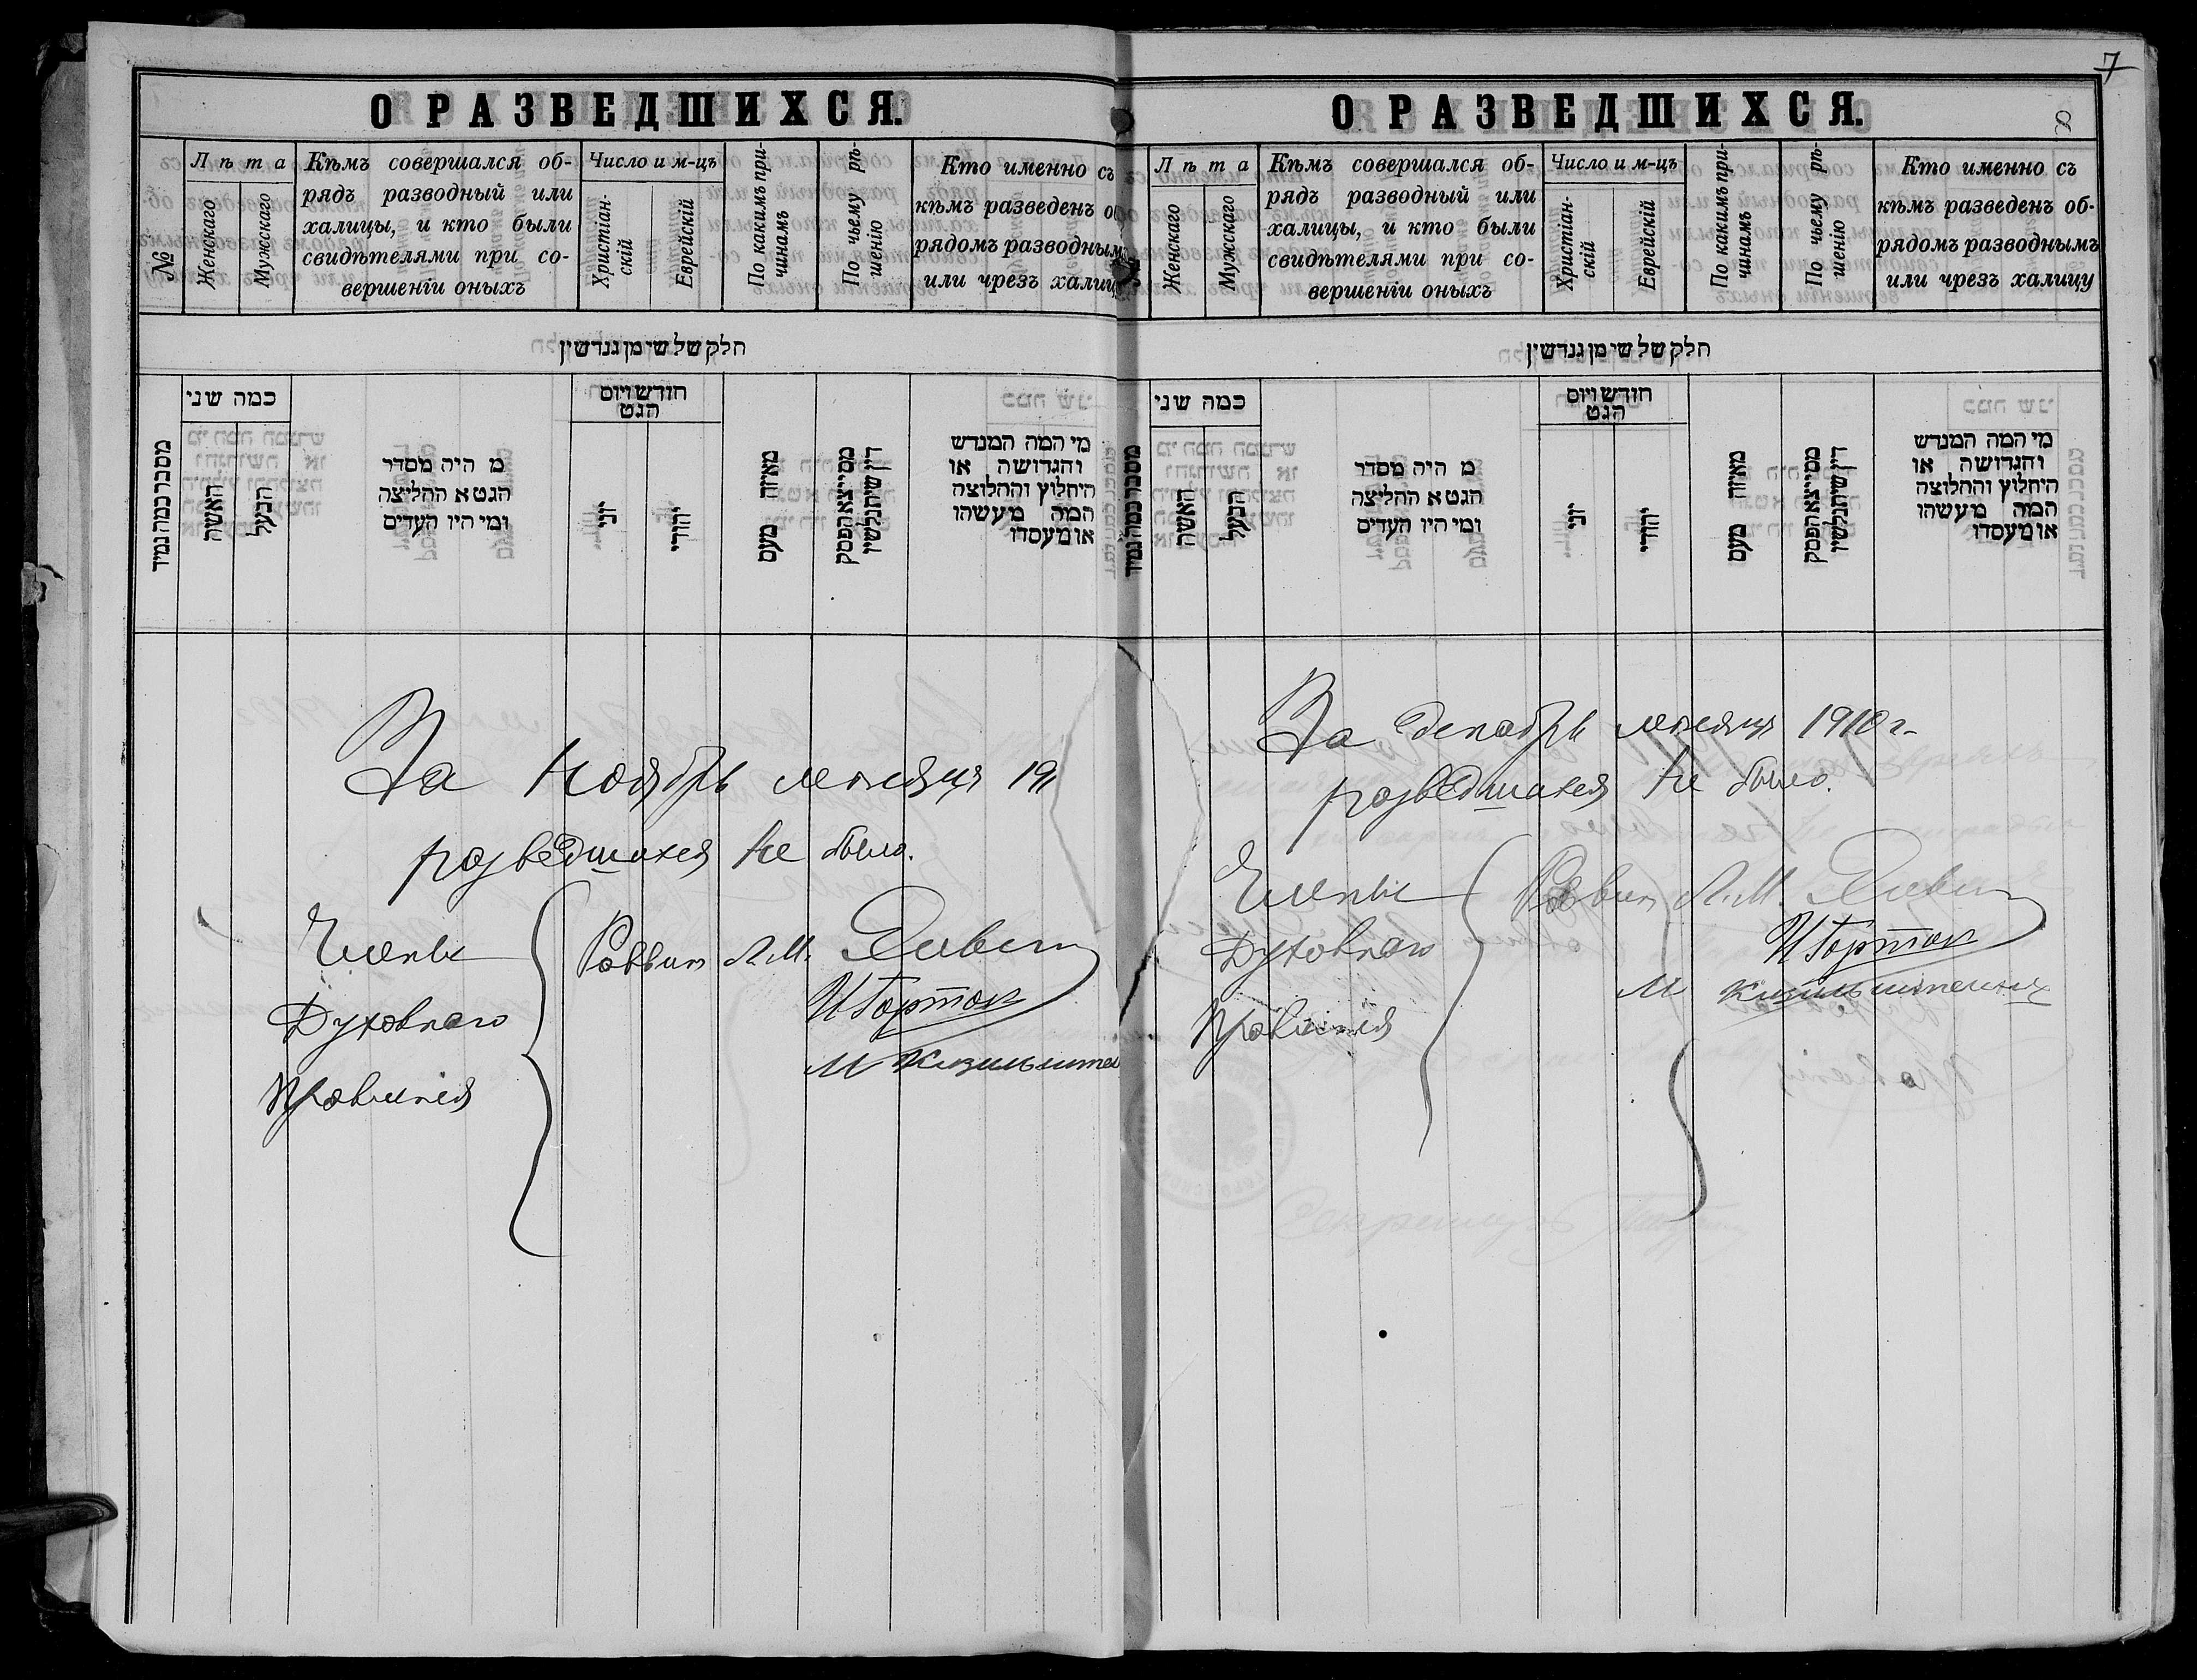 О РАЗВЕДШИХСЯ.
№
Лѣта
Женскаго
Мужскаго
Кѣмъ совершался об-
рядъ разводный или
халицы, и кто были
свидѣтелями при со-
вершеніи оныхъ
Число и м-цъ
Христіан-
скій
Еврейскій
По какимъ при-
чинамъ
По чьему рѣ-
шенію
Кто именно съ
кѣмъ разведенъ об
рядомъ разводным
или чрезъ халиц
חלק של שי מן גנרשין
מספר כמה נמיר
כמה שני
האשה
הבעל
מ היה מסדר
הגט א החליצה
ומי היו העדים
חודש ויום
הגט
יוני
יהודי
מאיזה טעם
מי המה המגרש
והגרושה או
היחלוץ והחלוצה
המה מעשהו
או מעסדו
За Ноябрь месяця 191
розведшихся не было.
Члены
Духовнаго
Правленія
Раввин Л.М.
И Гортак
М
7
8
О РАЗВЕДШИХСЯ.
Лѣта
Женскаго
Мужскаго
Кѣмъ совершался об-
рядъ разводный или
халицы, и кто были
свидѣтелями при со-
вершеніи оныхъ
Число и м-цъ
Христіан-
скій
Еврейскій
По какимъ при-
чинамъ
По чьему рѣ-
шенію
Кто именно съ
кѣмъ разведенъ об-
рядомъ разводнымъ
или чрезъ халицу
חלק של שי מן גנרשין
כמה שני
האשה
הבעל
מ היה מסדר
הגט א החליצה
ומי היו העדים
חודש ויום
הגט
יוני
יהודי
מאיזה טעם
מי המה המגרש
והגרושה או
היחלוץ והחלוצה
המה מעשהו
או מעסדו
За декабрь месяця 1910 г.
розведшихся не было.
Члены
Духовнаго
Правленія
Раввин Л.М.
И Гортак
М